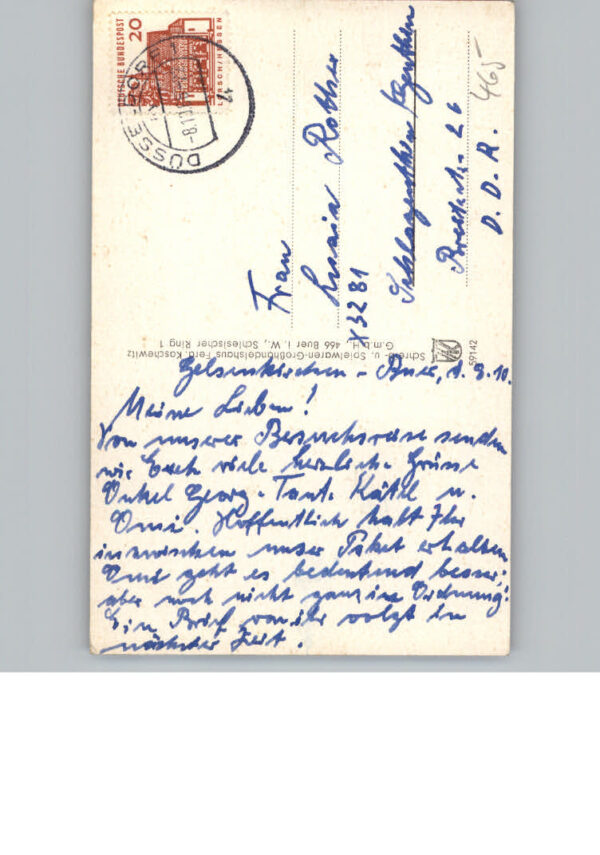 20
DEUTSCHE BUNDESPOST
LORSCH/HESSEN
DÜSSELDORF
-8.10.
17
465-
Frau
Rother
X3281
Schlagenthin
26
D. D. R.
Schreib- u. Spielwaren-Großhandelshaus Ferd. Koschewitz
G.m.b.H., 466 Buer i. W., Schlesischer Ring 1
59142
Gelsenkirchen - Buer,
Meine Lieben!
Von unserer Besuchsreise senden
wir Euch viele herzliche Grüsse
Onkel Georg - Tante Käthe u.
Omi. Hoffentlich habt Ihr
inzwischen unser Paket erhalten
Omi geht es bedeutend besser,
aber noch nicht ganz in Ordnung!
Ein Brief von ihr volgt in
nächster Zeit.